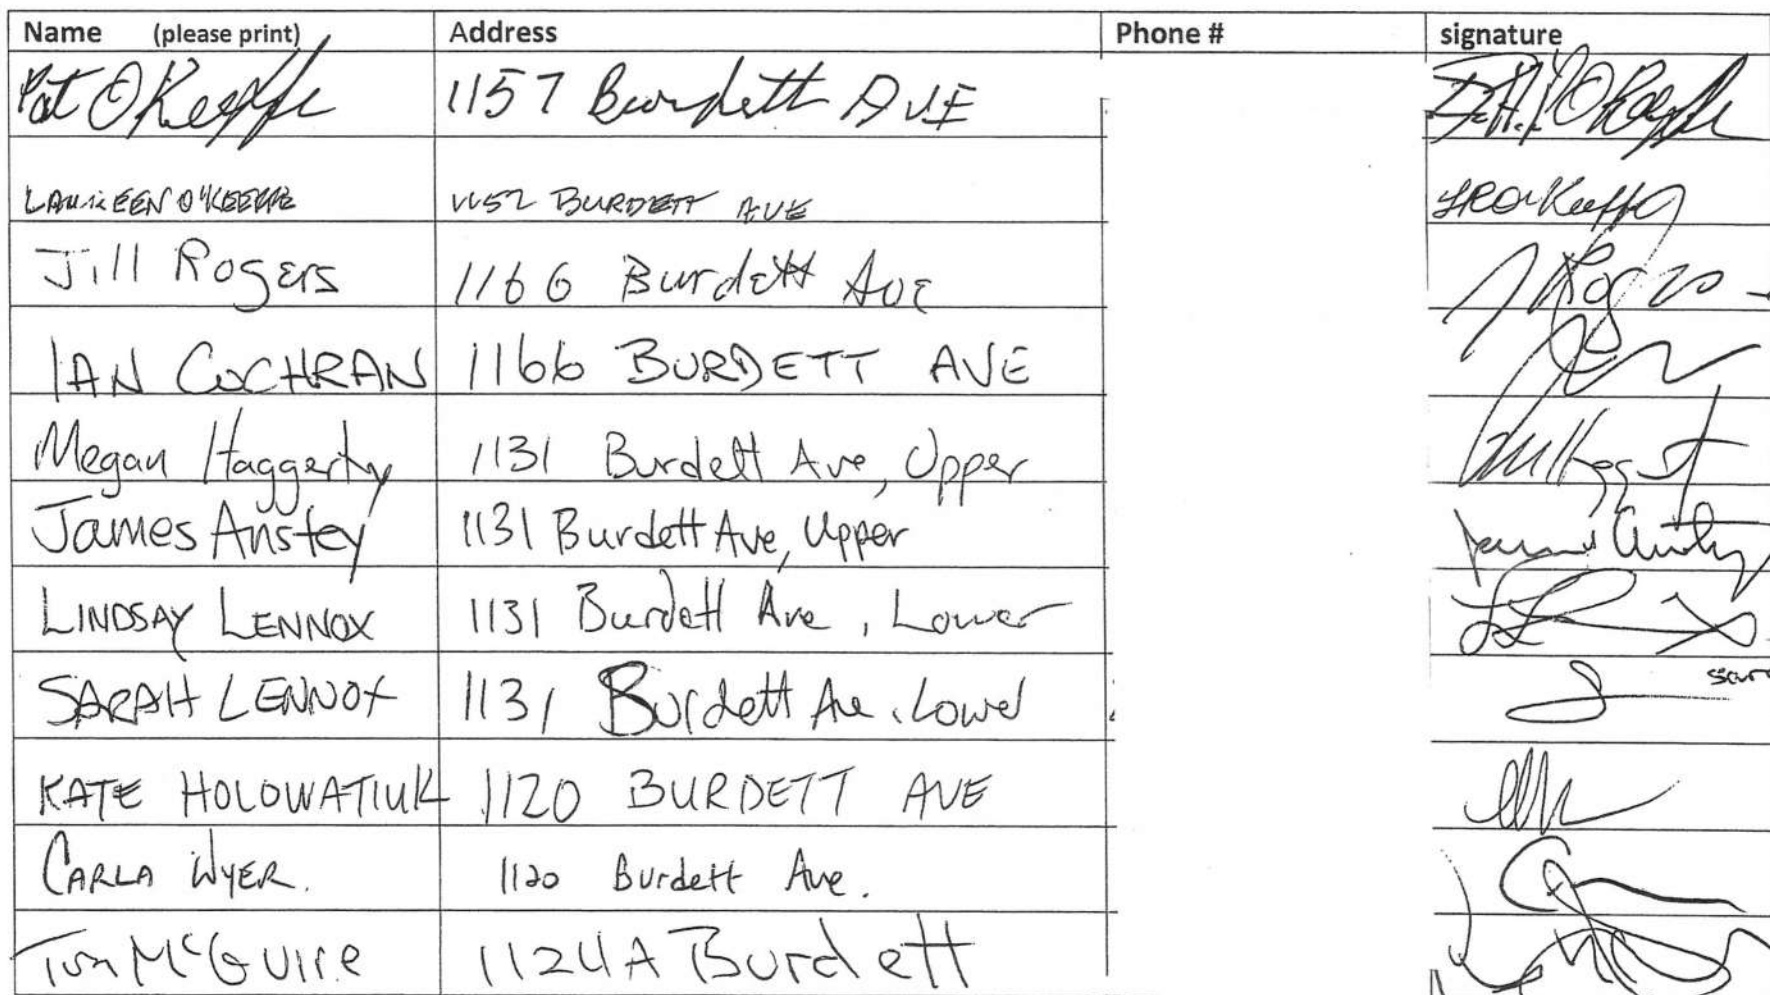 Name (please print) Address Phone # signature
Pat O'Keeffe 1157 Burdett AVE
O'KEEFFE BURDETT AVE
Jill Rogers 1166 Burdett Ave
IAN COCHRAN 1166 BURDETT AVE
Megan Haggerty 1131 Burdett Ave, Upper
James Anstey 1131 Burdett Ave, Upper
LINDSAY LENNOX 1131 Burdett Ave, Lower
SARAH LENNOX 1131 Burdett Ave, Lower
KATE HOLOWATIUK 1120 BURDETT AVE
CARLA WYER. 1120 Burdett Ave.
McGuire 1124A Burdett